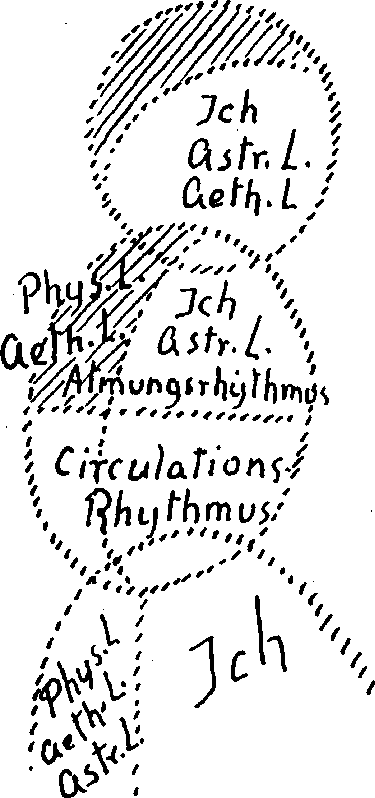 Ich
Astr. L.
Aeth. L
Phys. L.
Aeth. L.
Ich
Astr. L.
Atmungsrhythmus
Circulations-
Rhythmus
Phys. L
aeth. L.
Astr. L.
Ich